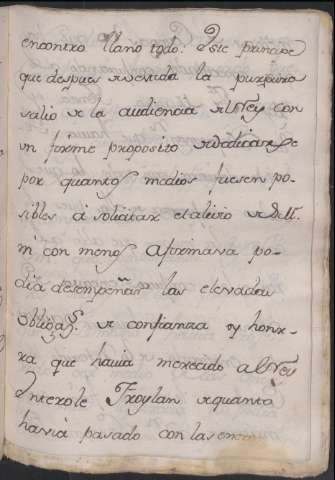 encontro llano todo: Dsie principe
que despues de vestida la purpura
salio de la audiencia del Rey con
vn firme proposito de dedicarse
por quantos medios fuesen po-
sibles à solicitar el alivio de S.M.
ni con menos afirmava po-
dia desempeñar las elevadas
obligaz.s de confianza y honr-
ra que havia merecido al Rey
Enterole Froylan de quanto
havia pasado con las enemi